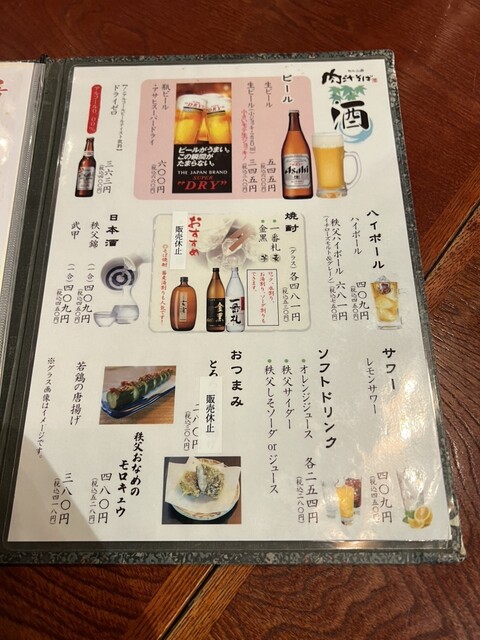 肉汁そば
酒
ビール
生ビール
五四五円
三四五円
ビールがうまい。
この瞬間が
たまらない。
THE JAPAN BRAND
SUPER
"DRY"
Asahi
瓶ビール
・アサヒスーパードライ
六〇〇円
ドライゼロ
三六三円
ハイボール
ハイボール
四〇九円
(税込四五〇円)
秩父ハイボール
(イチローズモルト&グレーン)
六八一円
(税込七五〇円)
焼酎
(グラス)
各四八一円
・一番札 麦
・金黒 芋
おすすめ
販売休止
一番札
金黒
日本酒
秩父錦
(一合)四〇九円
(税込四五〇円)
武甲
(一合)四〇九円
(税込四五〇円)
サワー
レモンサワー
四〇九円
(税込四五〇円)
ソフトドリンク
・オレンジジュース
・秩父サイダー
・秩父しそソーダ or ジュース
各二五四円
(税込二八〇円)
おつまみ
とろ
販売休止
秩父おなめの
モロキュウ
四八〇円
(税込五二八円)
若鶏の唐揚げ
三八〇円
(税込四一八円)
※グラス画像はイメージです。